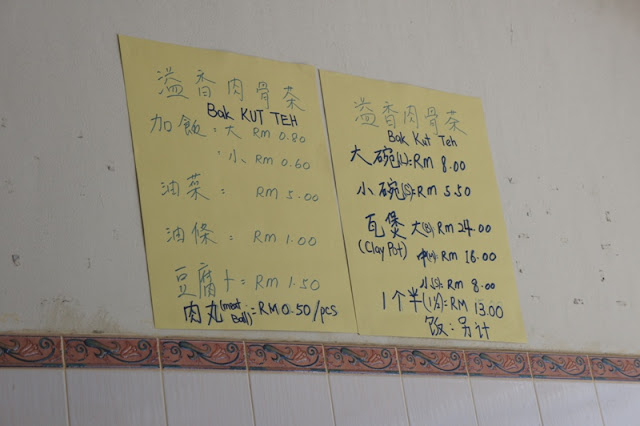 溢香肉骨茶
Bak KUT TEH
加飯：大 RM 0.80
：小 RM 0.60
油菜： RM 5.00
油條： RM 1.00
豆腐卜： RM 1.50
肉丸(meat Ball)：RM 0.50/pcs
溢香肉骨茶
Bak Kut Teh
大碗(L)：RM 8.00
小碗(S)：RM 5.50
瓦煲 大(B)：RM 24.00
(Clay Pot) 中(M)：RM 16.00
小(S)：RM 8.00
1个半(1½)：RM 13.00
饭：另计